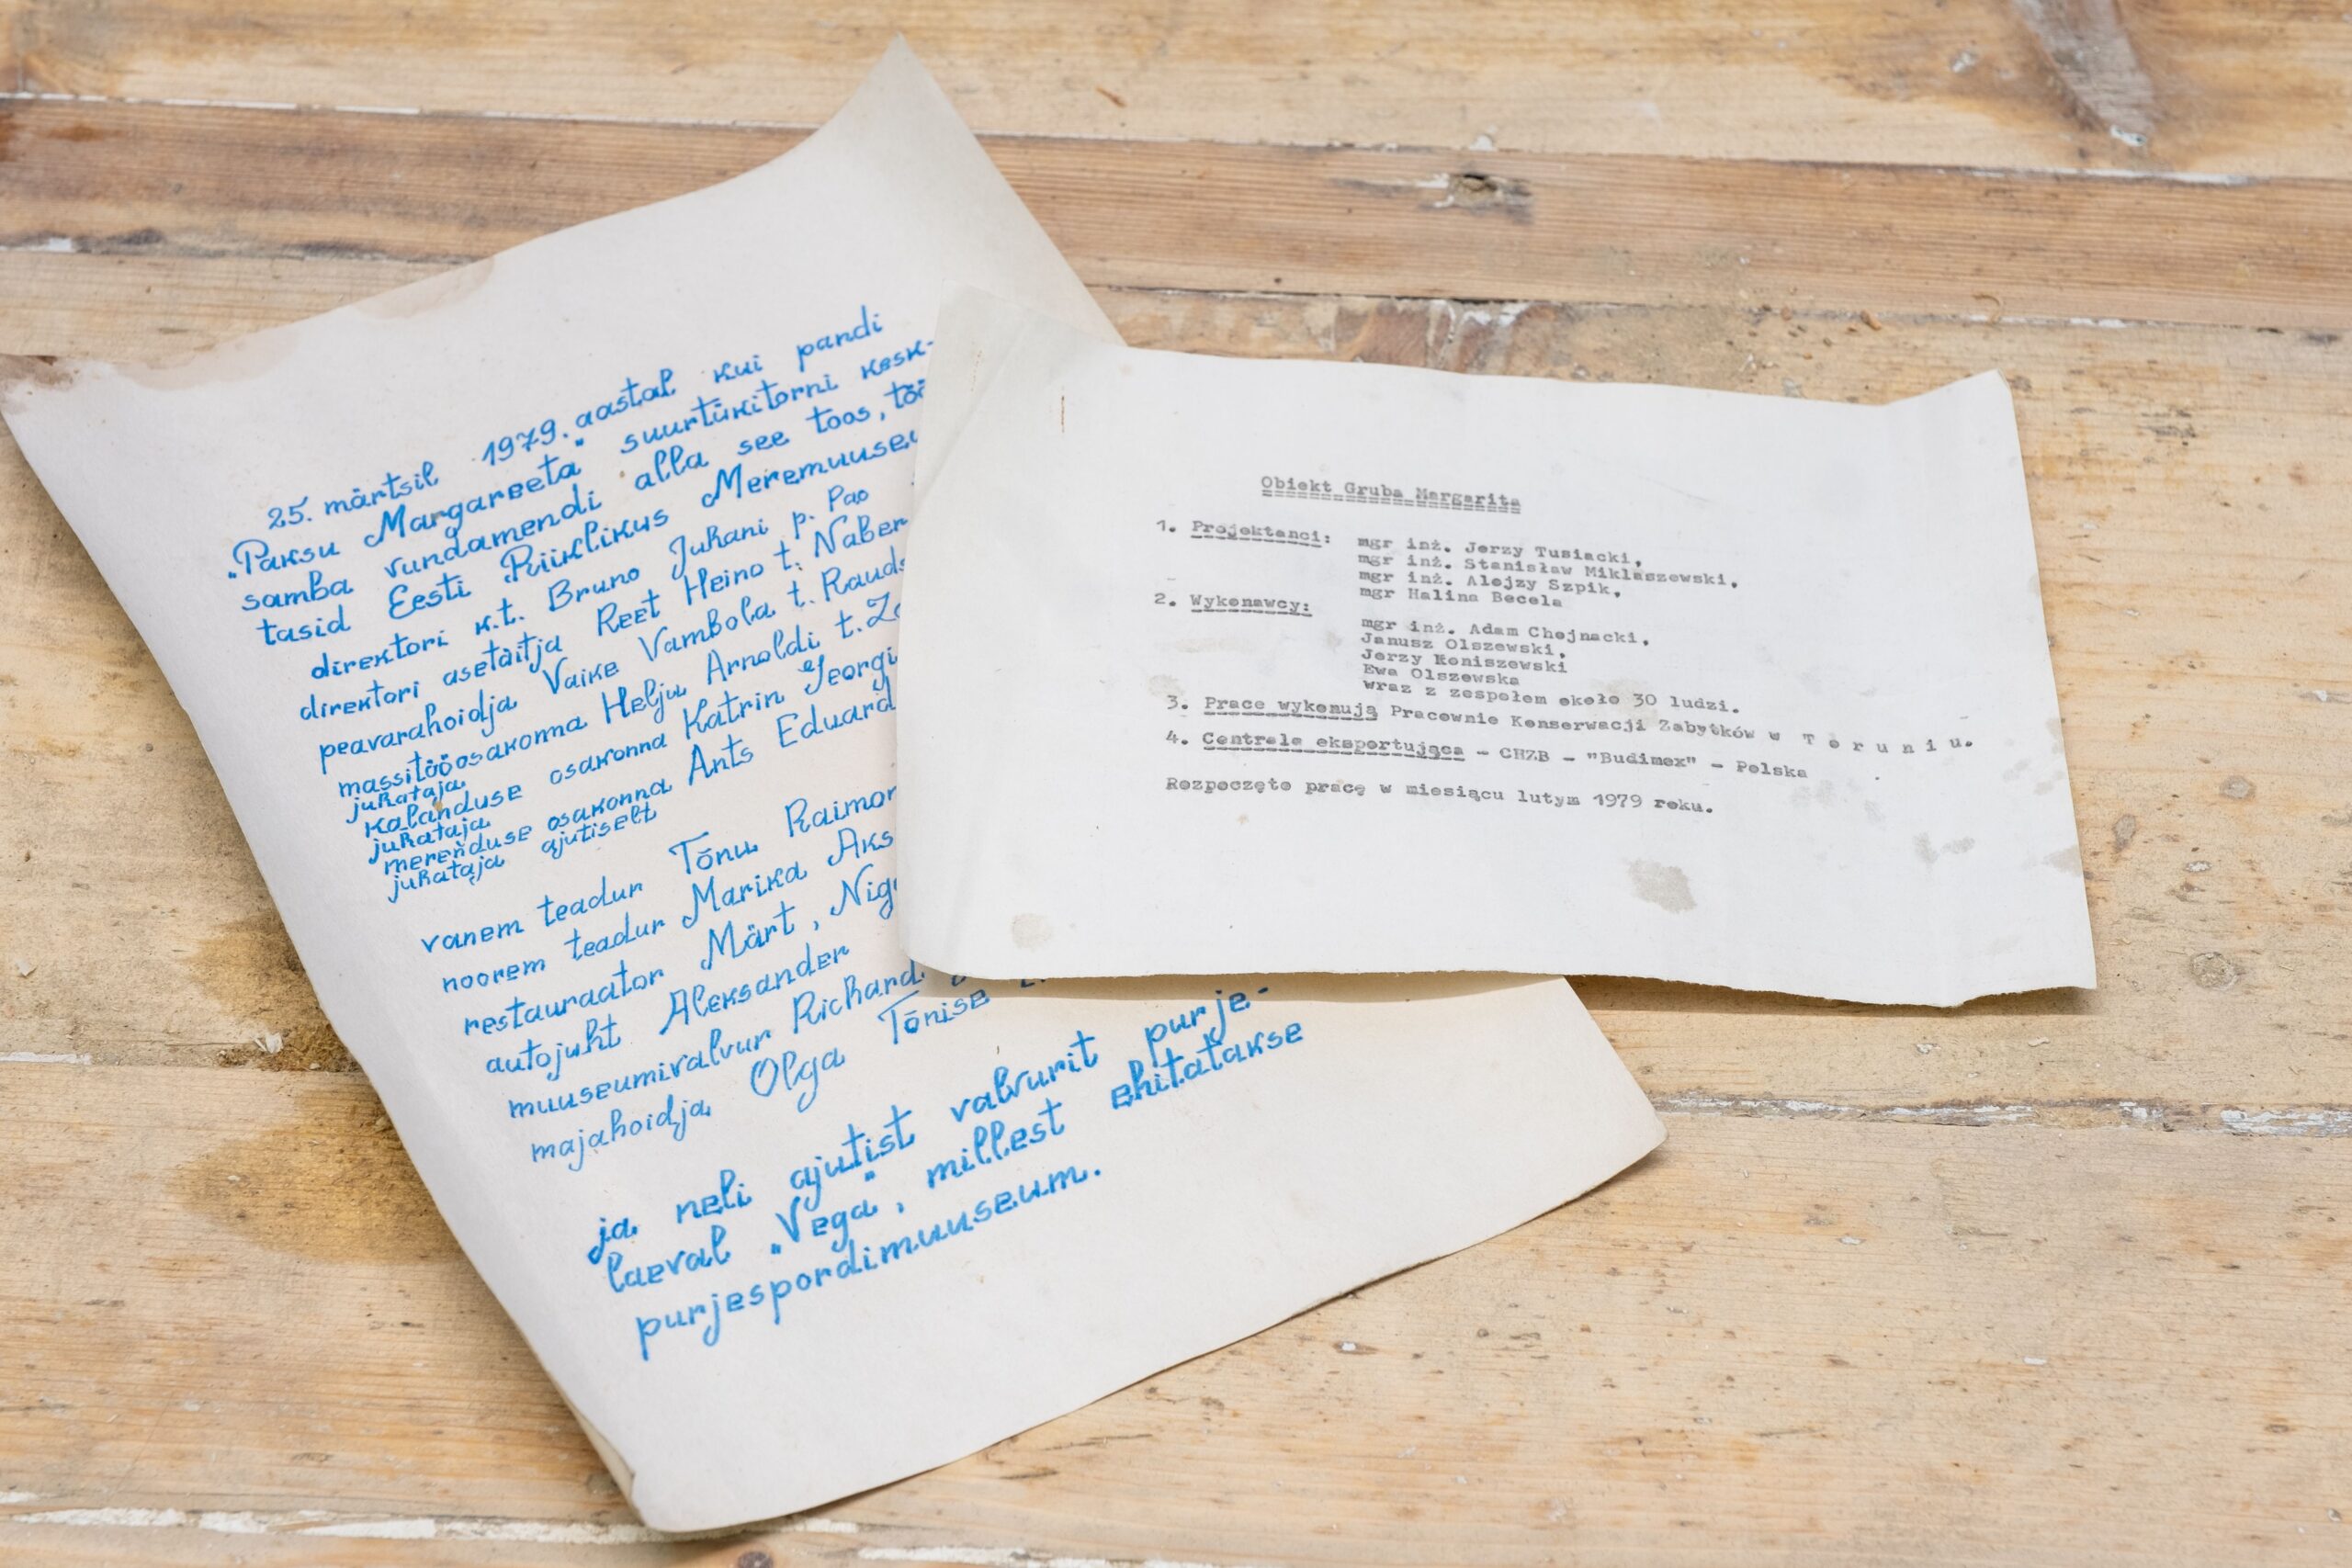 25. märtsil 1979. aastal kui pandi
„Paksu Margareeta" suurtükitorni kesk-
samba vundamendi alla see toos,
tasid Eesti Riiklikus
direktori k.t. Bruno Juhani p. Pao
direktori asetäitja Reet Heino t.
peavarahoidja Vaike Vambola t.
massitööosakonna Helju Arnoldi t.
juhataja
kalanduse osakonna Katrin
juhataja
merenduse osakonna Ants
juhataja ajutiselt
vanem teadur Tõnu
noorem teadur Marika
restauraator Märt,
autojuht Aleksander
muuseumivalvur
majahoidja Olga Tõnise
ja neli ajutist valvurit purje-
laeval „Vega", millest ehitatakse
purjespordimuuseum.
Obiekt Gruba Margarita
1. Projektanci: mgr inż. Jerzy Tusiacki,
mgr inż. Stanisław Miklaszewski,
mgr inż. Alojzy Szpik,
mgr Halina Becela
2. Wykonawcy:
mgr inż. Adam Chojnacki,
Janusz Olszewski,
Jerzy Koniszewski
Ewa Olszewska
wraz z zespołem około 30 ludzi.
3. Prace wykonują Pracownie Konserwacji Zabytków w T o r u n i u.
4. Centrala eksportująca - CHZB - "Budimex" - Polska
Rozpoczęto pracę w miesiącu lutym 1979 roku.